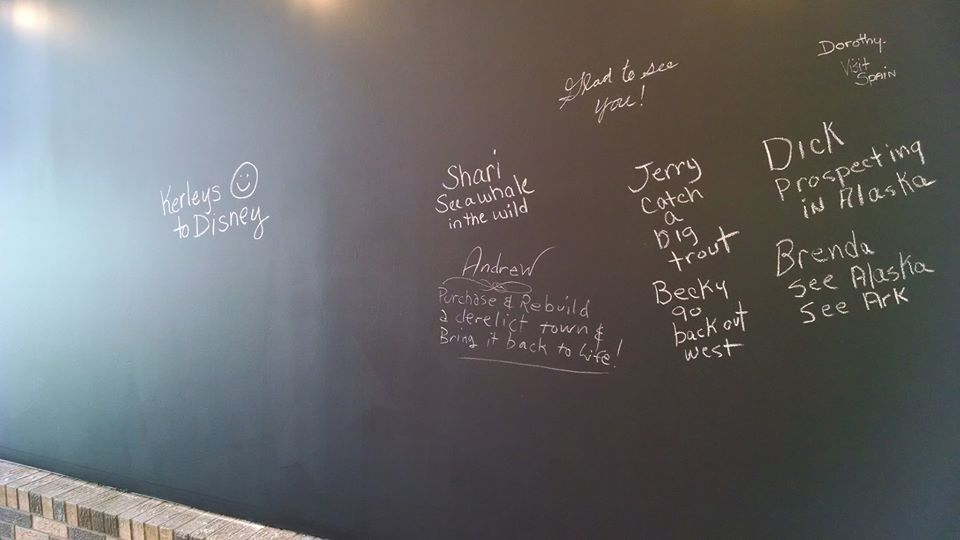 Kerleys
to Disney
Glad to see
you!
Shari
See a whale
in the wild
Andrew
Purchase & Rebuild
a derelict town &
Bring it back to Life!
Jerry
catch
a
big
trout
Becky
go
back out
west
Dorothy-
Visit
Spain
Dick
Prospecting
in Alaska
Brenda
See Alaska
See Ark